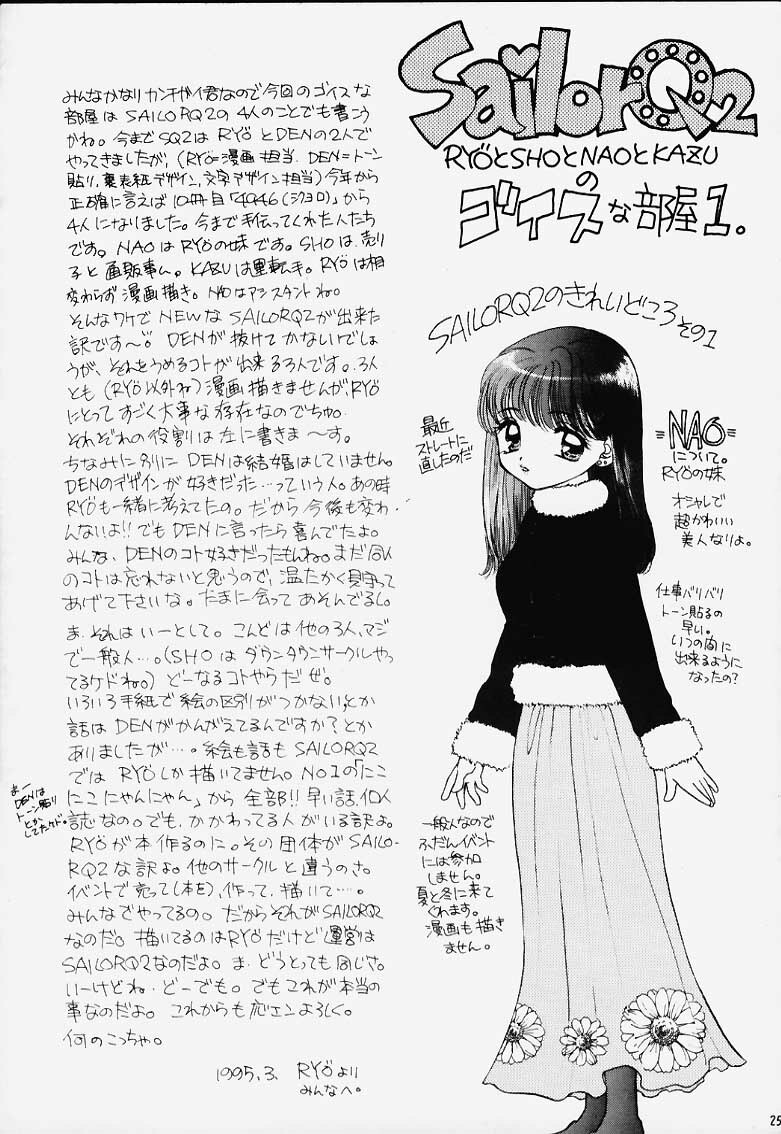 SailorQ2
RYÖとSHOとNAOとKAZU
の
ゴイスな部屋1.
みんなかなりカンチガイ君なので今回のゴイスな
部屋はSAILORQ2の4人のことでも書こう
かね。今までSQ2はRYÖとDENの2人で
やってきましたが、(RYÖ=漫画担当、DEN=トーン
貼り、裏表紙デザイン、文字デザイン担当)今年から
正確に言えば10冊目「4946(シクヨロ)」から
4人になりました。今まで手伝ってくれた人たち
です。NAOはRYÖの妹です。SHOは、売り
子と通販事ム。KAZUは運転手。RYÖは相
変わらず漫画描き。NAOはアシスタントね。
そんなワケでNEWなSAILORQ2が出来た
訳です〜。DENが抜けてかないでしょ
うが、それをうめるコトが出来る3人です。3人
とも(RYÖ以外ね)漫画描きませんが、RYÖ
にとってすごく大事な存在なのでちゅ。
それぞれの役割は左に書きま〜す。
ちなみに別にDENは結婚はしていません。
DENのデザインが好きだった…っていう人。あの時
RYÖも一緒に考えてたの。だから今後も変わ
んないよ!!でもDENに言ったら喜んでたよ。
みんな、DENのコト好きだったもんね。まだ同人
のコトは忘れないと思うので、温たかく見守って
あげて下さいな。たまに会ってあそんでるし。
ま、それはいーとして。こんどは他の3人、マジ
で一般人…。(SHOはダウンタウンサークルやっ
てるケドね。)どーなるコトやらだぜ。
いろいろ手紙で絵の区別がつかない、とか
話はDENがかんがえてるんですか?とか
ありましたが…。絵も話もSAILORQ2
ではRYÖしか描いてません。NO1の「にこ
にこにゃんにゃん」から全部!!早い話、個人
誌なの。でも、かかわってる人がいる訳よ。
RYÖが本作るのに。その団体がSAILO-
RQ2な訳よ。他のサークルと違うのさ。
イベントで売って(本を)、作って、描いて…。
みんなでやってるの。だからそれがSAILORQ2
なのだ。描いてるのはRYÖだけど運営は
SAILORQ2なのだよ。ま、どうとっても同じさ。
いーけどね、どーでも。でもこれが本当の
事なのだよ。これからも応エンよろしく。
何のこっちゃ。
1995.3. RYÖより
みんなへ。
まー
DENは
トーン貼り
とか
してたケド。
SAILORQ2のきれいどころその1
最近
ストレートに
直したのだ
=NAO=
について。
RYÖの妹
オシャレで
超かわいい
美人なりよ。
仕事バリバリ
トーン貼るの
早い。
いつの間に
出来るように
なったの?
一般人なので
ふだんイベント
には参加
しません。
夏と冬に来て
くれます。
漫画も描き
ません。
25